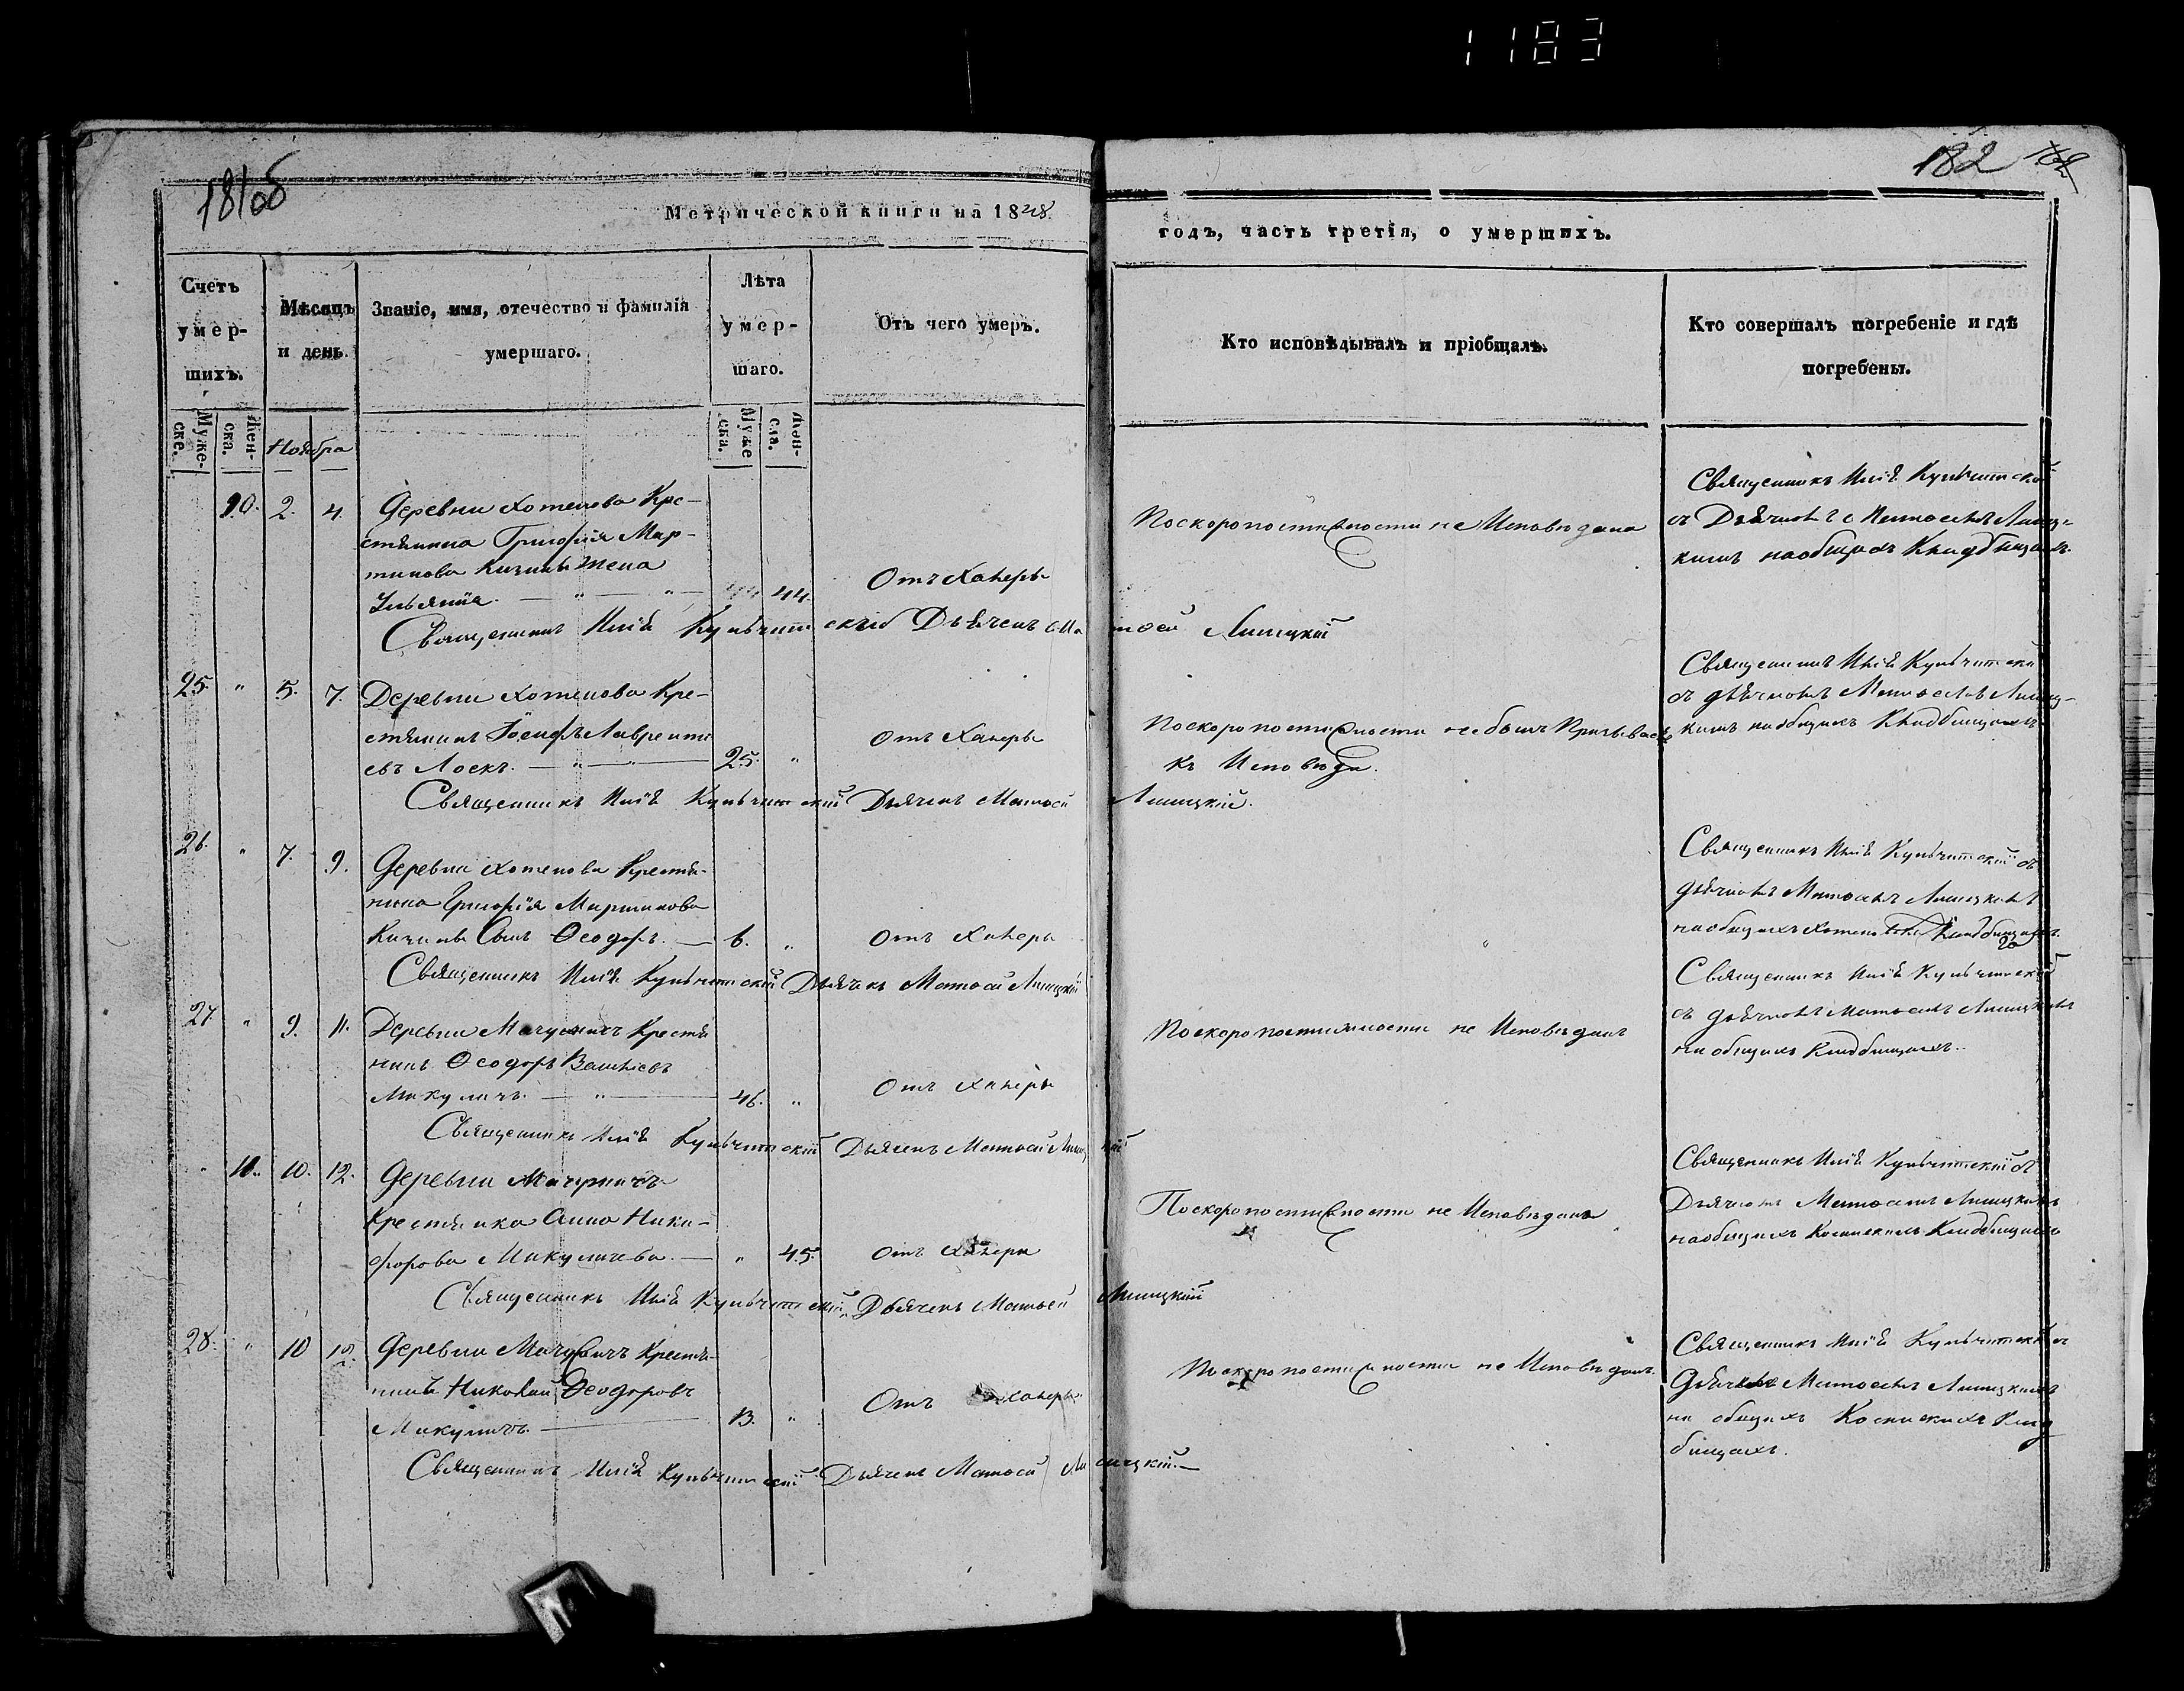 1183
181об
182
Метрической книги на 1848.
годъ, часть третія, о умершихъ.
Счетъ умер-шихъ.
Мѣсяцъ и день.
Званіе, имя, отечество и фамилія умершаго.
Лѣта умер-шаго.
Отъ чего умеръ.
Кто исповѣдывалъ и пріобщалъ.
Кто совершалъ погребеніе и гдѣ погребены.
Муже-ске.
Жен-ска.
Ноября
Муже ска.
Жен-ска.
10. 2. 4. Деревни Хотенова Кре-
стянина Григорія Мар-
тинова жена
Ульянія. — " — " — 44.
Отъ Халеры
Поскоропостижности не Исповѣдана
Священникъ Илія Кульчитскій
съ Дьячкомъ Матѳеемъ Лисиц-
кимъ на общихъ Кладбищахъ.
Священникъ Илія Кульчитскій Дьячекъ Матѳей Лисицкій
25. " 5. 7. Деревни Хотенова Кре-
стянинъ Іосифъ Лавренті
евъ Лоскъ. — " — 25. "
Отъ Халеры
Поскоропостижности не былъ Призыванъ
къ Исповѣди.
Священникъ Илія Кульчитскій
съ дьячкомъ Матѳеемъ Лисиц-
кимъ на общихъ Кладбищахъ
Священникъ Илія Кульчитскій Дьячекъ Матѳей Лисицкій.
26. " 7. 9. Деревни Хотенова Крестя-
нина Григорія Мартинова
Сынъ Ѳеодоръ. — 6. "
Отъ Халеры
"
Священникъ Илія Кульчитскій съ
дьячкомъ Матѳеемъ Лисицкимъ
на общихъ Кладбищахъ.
Священникъ Илія Кульчитскій Дьячекъ Матѳей Лисицкій
27. " 9. 11. Деревни Мачуличъ Крестя
нинъ Ѳеодоръ
Микуличъ. — " — 46. "
Отъ Халеры
Поскоропостижности не Исповѣданъ
Священникъ Илія Кульчитскій
съ дьячкомъ Матѳеемъ Лисицкимъ
на общихъ Кладбищахъ.
Священникъ Илія Кульчитскій Дьячекъ Матѳей Лисицкій
" 11. 10. 12. Деревни Мачуличъ
Крестянка Анна Ники-
форова Микуличева. — " 45.
Отъ Халеры
Поскоропостижности не Исповѣдана
Священникъ Илія Кульчитскій съ
Дьячкомъ Матѳеемъ Лисицкимъ
на общихъ Кладбищахъ
Священникъ Илія Кульчитскій Дьячекъ Матѳей Лисицкій
28. " 10 12. Деревни Мачуличъ Крестя-
нинъ Николай Ѳеодоровъ
Микуличъ. — 13. "
Отъ Халеры
Поскоропостижности не Исповѣданъ.
Священникъ Илія Кульчитскій съ
Дьячкомъ Матѳеемъ Лисицкимъ
на общихъ Клад
бищахъ.
Священникъ Илія Кульчитскій Дьячекъ Матѳей Лисицкій. —